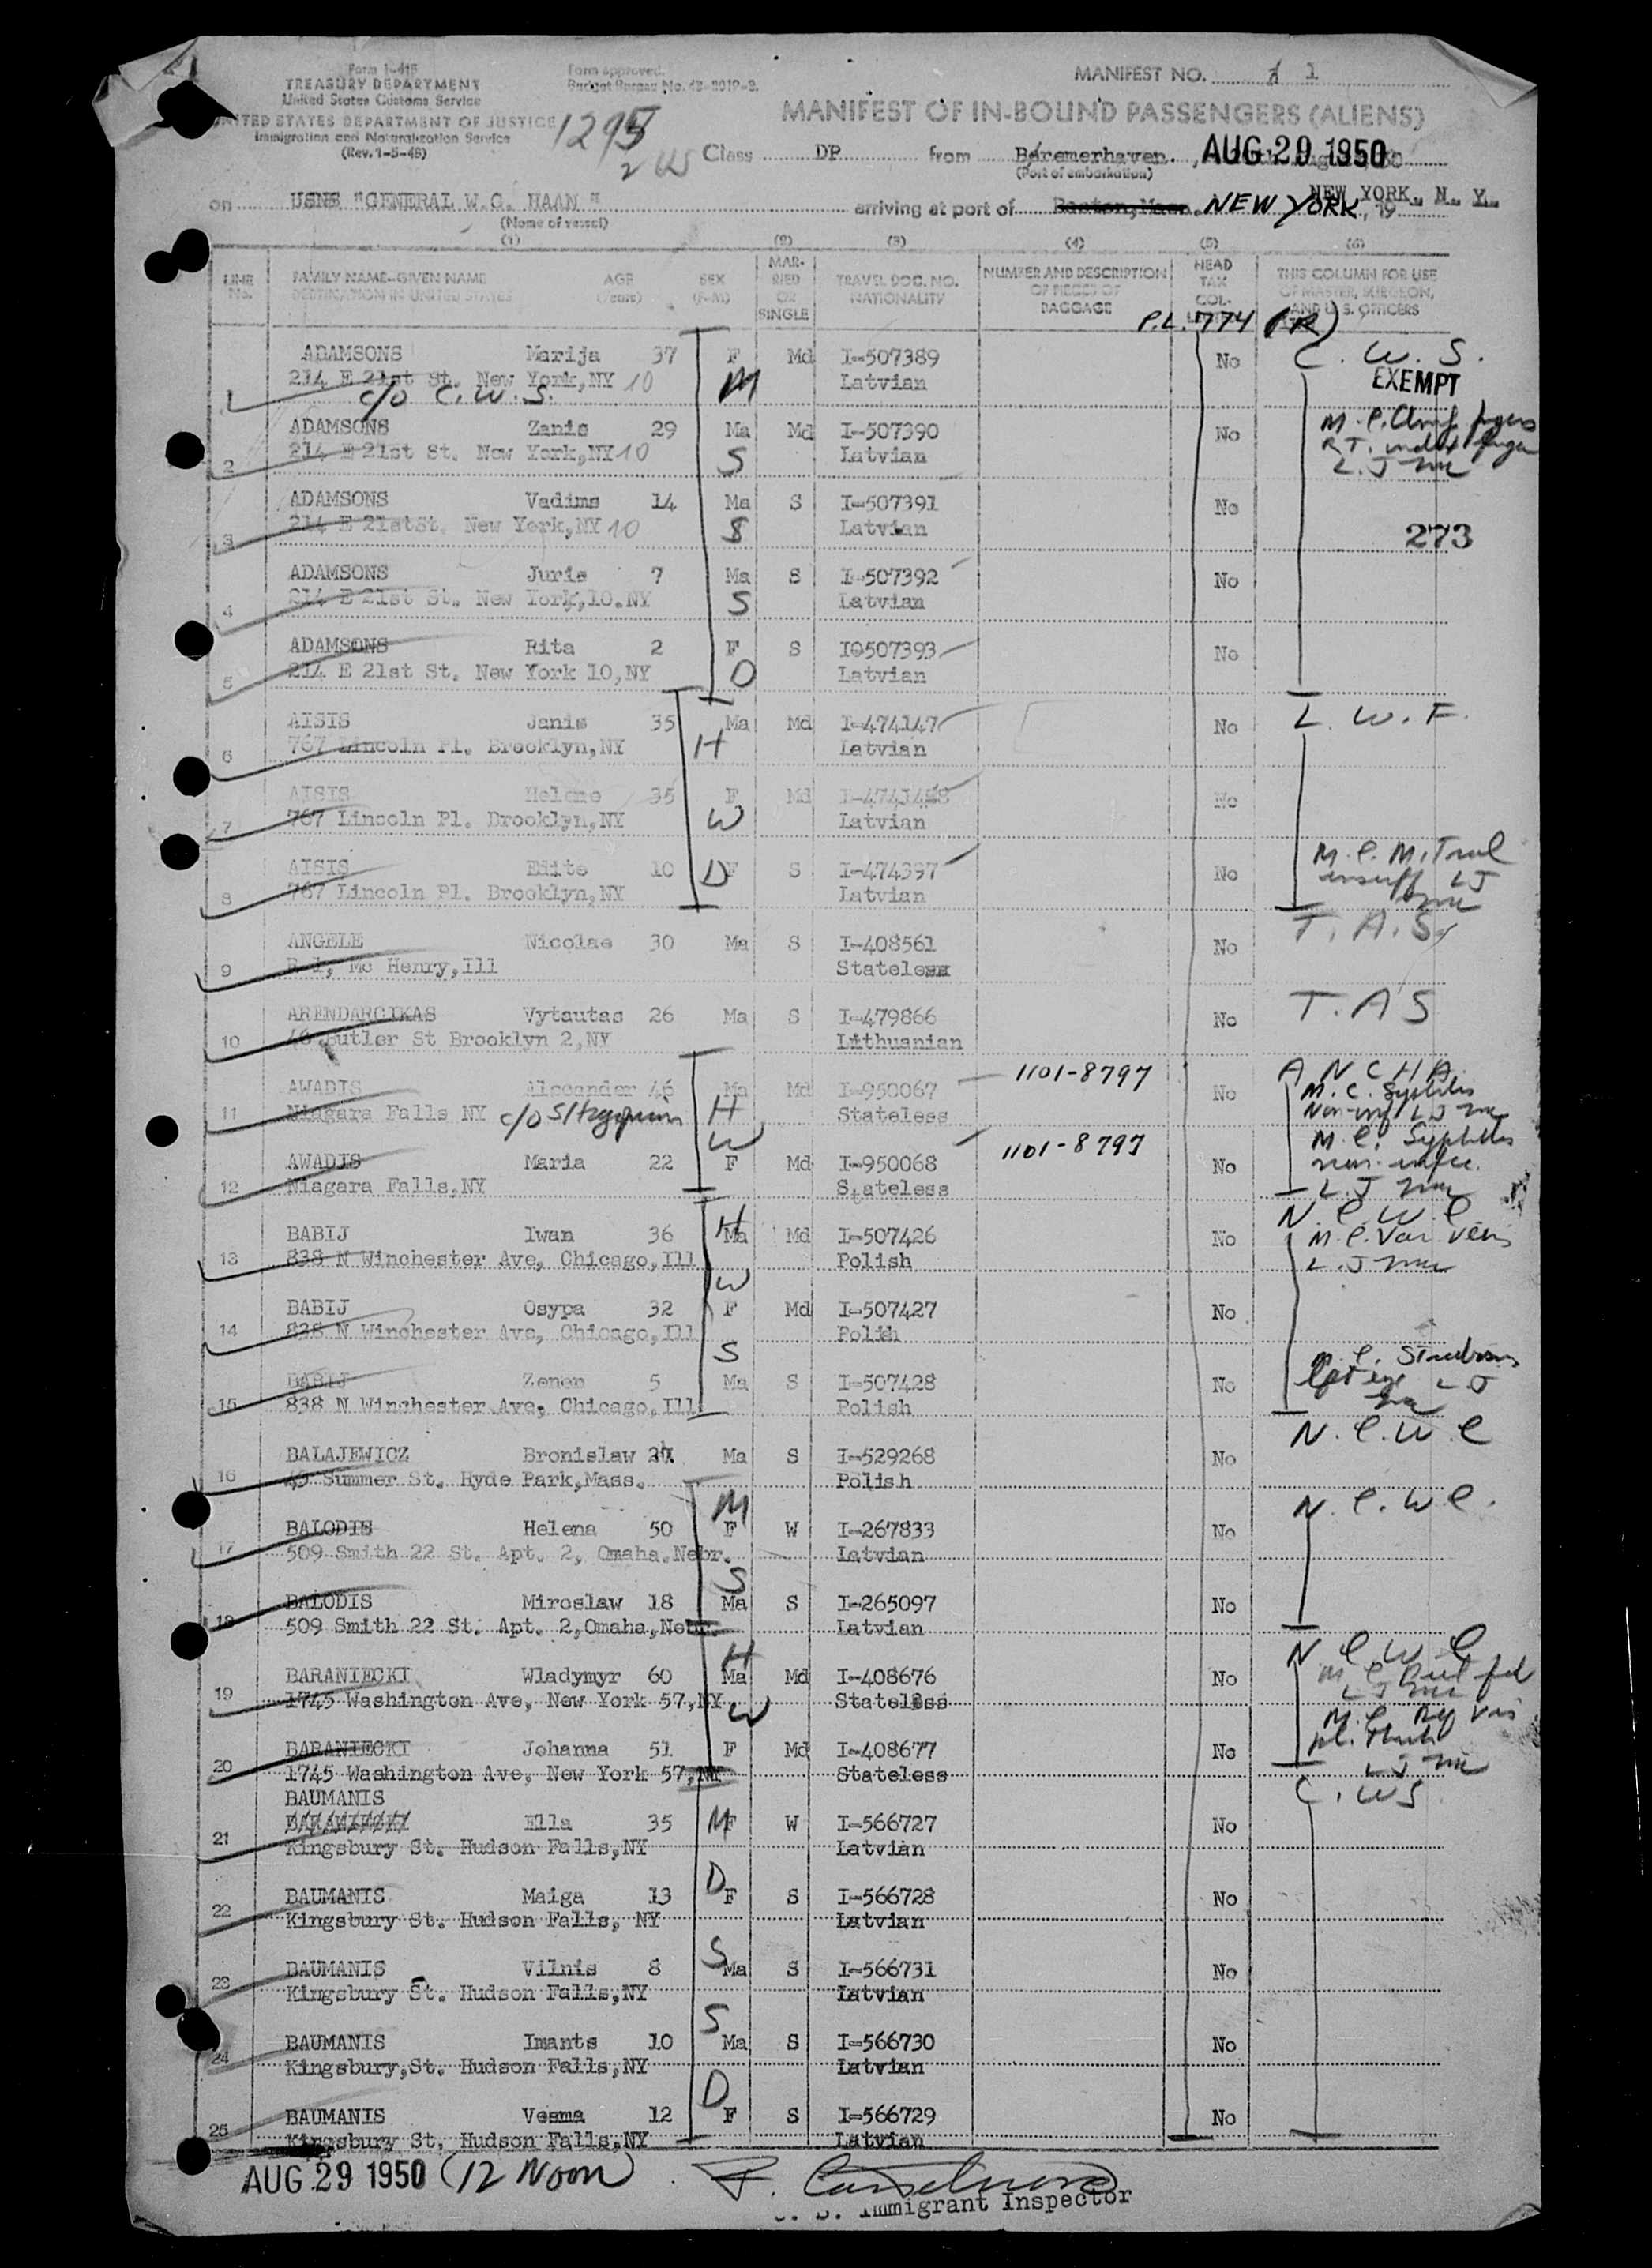 Form I-415
TREASURY DEPARTMENT
United States Customs Service
UNITED STATES DEPARTMENT OF JUSTICE
Immigration and Naturalization Service
(Rev. 1-5-48)
Form approved.
Budget Bureau No. 43-R019-2.
1295
MANIFEST NO. 1
MANIFEST OF IN-BOUND PASSENGERS (ALIENS)
Class DP from Baremerhaven. , AUG 29 1950
(Port of embarkation)
on USNS "GENERAL W.C. HAAN" arriving at port of Boston, Mass. NEW YORK, 19 NEW YORK, N. Y.
(Name of vessel)
(1) (2) (3) (4) (5) (6)
LINE No. FAMILY NAME-GIVEN NAME DESTINATION IN UNITED STATES AGE (Years) SEX (F-M) MAR-RIED OR SINGLE TRAVEL DOC. NO. NATIONALITY NUMBER AND DESCRIPTION OF PIECES OF BAGGAGE HEAD TAX COL- THIS COLUMN FOR USE OF MASTER, SURGEON, AND U.S. OFFICERS
P.L. 774 (R)
ADAMSONS Marija 37 F Md I-507389 No C. W. S.
1 214 E 21st St. New York, NY 10 M Latvian EXEMPT
c/o C. W. S.
ADAMSONS Zanis 29 Ma Md I-507390 No M.C.
2 214 E 21st St. New York, NY 10 S Latvian
ADAMSONS Vadims 14 Ma S I-507391 No
3 214 E 21stSt. New York, NY 10 S Latvian 273
ADAMSONS Juris 7 Ma S I-507392 No
4 214 E 21st St. New York, 10. NY S Latvian
ADAMSONS Rita 2 F S I0507393 No
5 214 E 21st St. New York 10, NY D Latvian
AISIS Janis 35 Ma Md I-474147 No L. W. F.
6 767 Lincoln Pl. Brooklyn, NY H Latvian
AISIS Helene 35 F Md No
7 767 Lincoln Pl. Brooklyn, NY W Latvian
AISIS Edite 10 D F S I-474397 No M.C. Mitral
8 767 Lincoln Pl. Brooklyn, NY Latvian insuff LJ
ANGELE Nicolae 30 Ma S I-408561 No T. A. S.
9 R 1, Mc Henry, Ill Stateless
ARENDARCIKAS Vytautas 26 Ma S I-479866 No T. A S
10 Butler St Brooklyn 2, NY Lithuanian
AWADIS Alecander 46 Ma Md I-950067 1101-8797 No A N C H A
11 Niagara Falls NY c/o H Stateless M. C. Syphilis
AWADIS Maria 22 W F Md I-950068 1101-8797 No M.C. Syphilis
12 Niagara Falls, NY Stateless L. J
BABIJ Iwan 36 H Ma Md I-507426 No N. C. W. C
13 838 N Winchester Ave, Chicago, Ill Polish M.C. Var Veins
BABIJ Osypa 32 W F Md I-507427 No
14 838 N Winchester Ave, Chicago, Ill Polish
BABIJ Zenon 5 S Ma S I-507428 No
15 838 N Winchester Ave. Chicago, Ill Polish
BALAJEWICZ Bronislaw Ma S I-529268 No N. C. W. C
16 Summer St. Hyde Park, Mass. Polish
BALODIS Helena 50 M F W I-267833 No N. C. W C.
17 509 Smith 22 St. Apt. 2, Omaha. Nebr. Latvian
BALODIS Miroslaw 18 S Ma S I-265097 No
18 509 Smith 22 St. Apt. 2, Omaha, Nebr. Latvian
BARANIECKI Wladymyr 60 H Ma Md I-408676 No N C W C
19 1745 Washington Ave, New York 57, NY Stateless
BARANIECKI Johanna 51 W F Md I-408677 No
20 1745 Washington Ave, New York 57, NY Stateless
BAUMANIS C. W S
21 Ella 35 M F W I-566727 No
Kingsbury St. Hudson Falls, NY Latvian
BAUMANIS Maiga 13 D F S I-566728 No
22 Kingsbury St. Hudson Falls, NY Latvian
BAUMANIS Vilnis 8 S Ma S I-566731 No
23 Kingsbury St. Hudson Falls, NY Latvian
BAUMANIS Imants 10 S Ma S I-566730 No
24 Kingsbury, St. Hudson Falls, NY Latvian
BAUMANIS Vesma 12 D F S I-566729 No
25 Kingsbury St, Hudson Falls, NY Latvian
AUG 29 1950 (12 Noon)
U. S. Immigrant Inspector